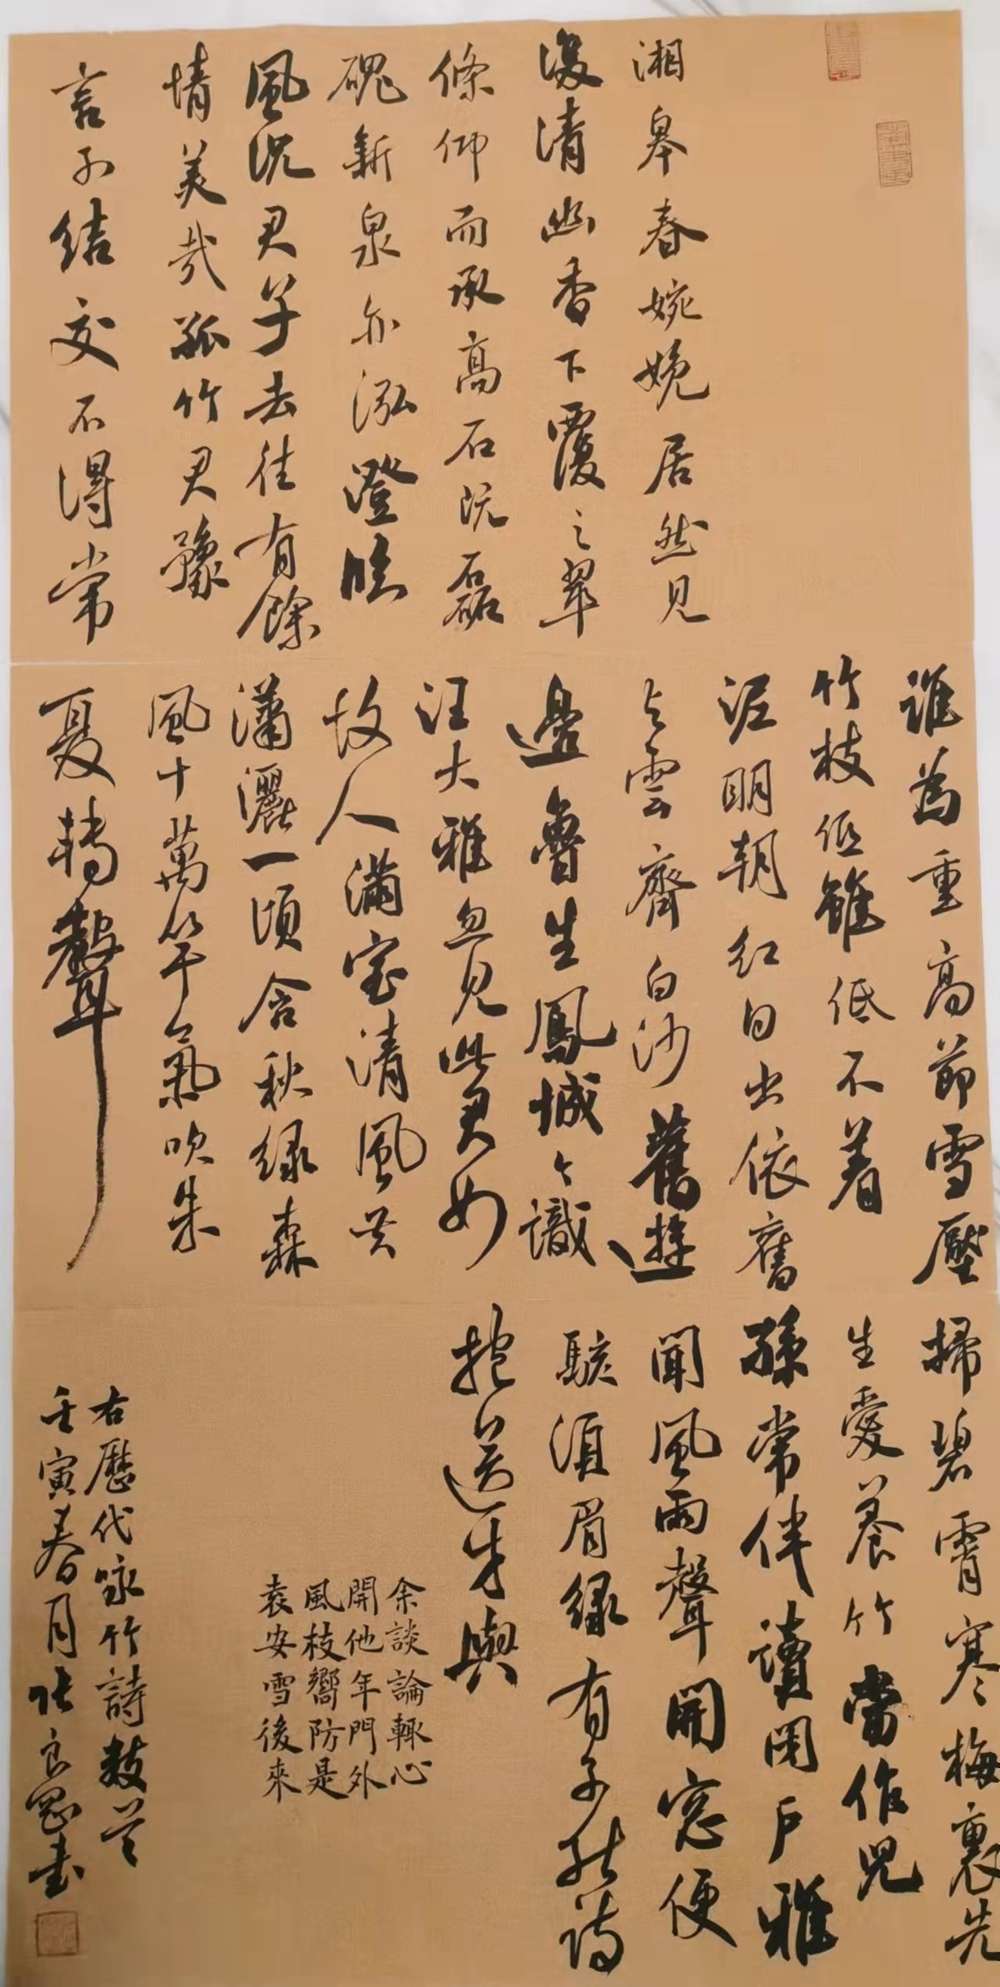 湘皋春婉娩居然見
漪清幽香下覆之翠
條仰而承高石既磊
磈新泉亦泓澄臨
風況君子去住有餘
情美哉孤竹君豫
言不結交不得常
誰為重高節雪壓
竹枝低雖低不着
泥明朝紅日出依舊
與雲齊白沙舊遊
邊魯生鳳城城識
汪大雅忽見此君如
故人滿室清風共
瀟灑一頃含秋綠森
風十萬竿氣吹朱
夏轉聲
掃碧霄寒梅裏先
生愛養竹當作兒
孫常伴讀閉戶雅
聞風雨聲開窓便
駭須眉綠有子能詩
抱送牙與
余談論輒心
開他年門外
風枝響防是
袁安雪後來
右歷代咏竹詩數首
壬寅春月張良書